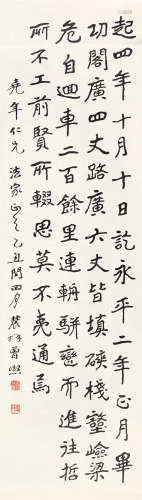 起四年十月十日訖永平二年正月畢
功閣廣四丈路廣六丈皆填磎棧壑嶮梁
危自迴車二百餘里連輈駢轡而進往哲
所不工前賢所輟思莫不夷通焉
堯年仁兄法家正之乙丑閏四月農髯曾熙